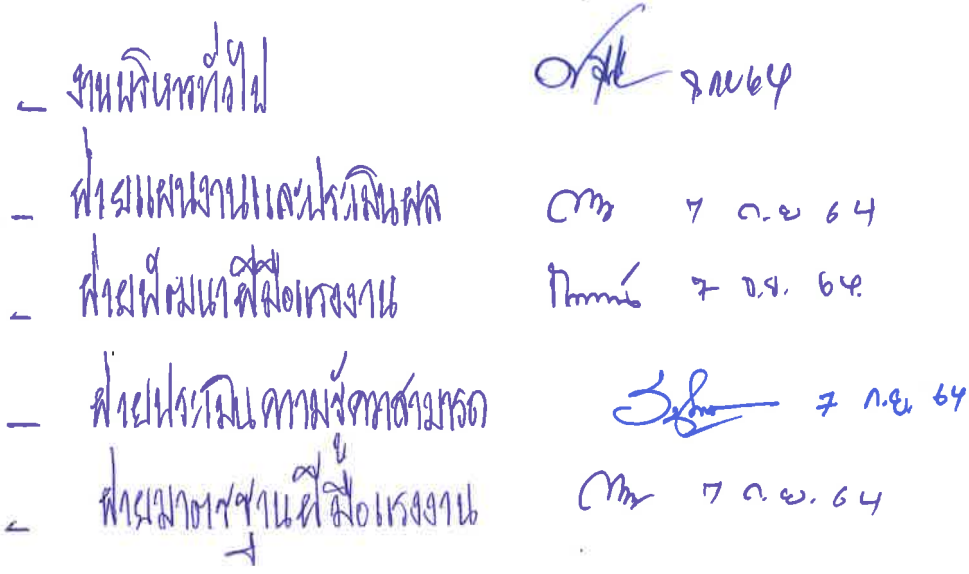 - งานบริหารทั่วไป 8 กย 64
- ฝ่ายแผนงานและประเมินผล 7 ก.ย 64
- ฝ่ายพัฒนาฝีมือแรงงาน 7 ก.ย. 64
- ฝ่ายประเมินความรู้ความสามารถ 7 ก.ย. 64
- ฝ่ายมาตรฐานฝีมือแรงงาน 7 ก.ย. 64